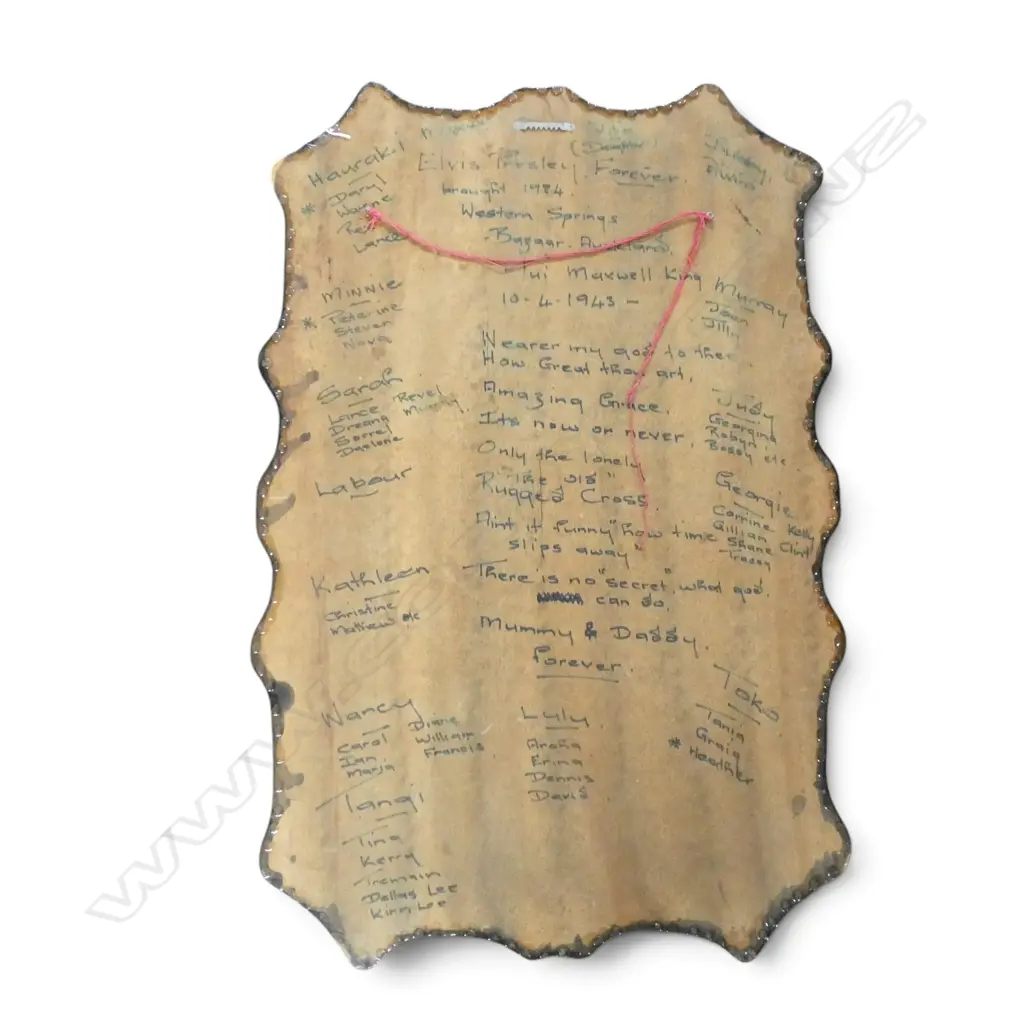 Hauraki
* Daryl
Wayne
Lance
(Daughter)
Elvis Presley Forever
brought 1984.
Western Springs
Bazaar. Auckland.
Tui Maxwell King Murray
10-4-1943 -
MINNIE
* Peterine
Steven
Nova
Sarah
Lance Revel
Dreana Murphy
Sorrel
Darlene
Labour
Kathleen
Christine
Matthew etc
Nearer my god to thee
How Great thou art,
Amazing Grace,
Its now or never,
Only the lonely
"The Old"
Rugged Cross,
Aint it funny "how time
slips away"
There is no "secret", what god,
can do,
Mummy & Daddy,
Forever.
Judy
Georgina
Robyn
Bossy etc
Georgie
Corrine Kelly
Gillian Clint
Shane
Tracey
Toko
Tania
Graig
* Heather
Nancy
Carol Diane
Ian William
Marja Francis
Lulu
Aroha
Erina
Dennis
David
Tangi
Tina
Kerry
Tremain
Dallas Lee
Kim Lee